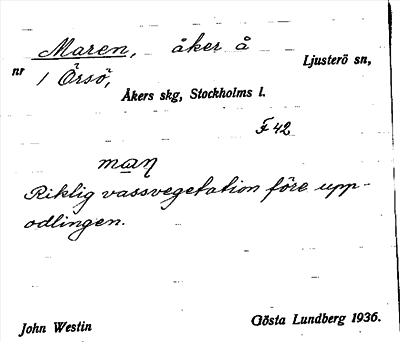 Maren, åker å Ljusterö sn,
nr 1 Örsö,
Åkers skg, Stockholms l.
F 42
maŋ
Riklig vassvegetation före upp-
odlingen.
John Westin Gösta Lundberg 1936.